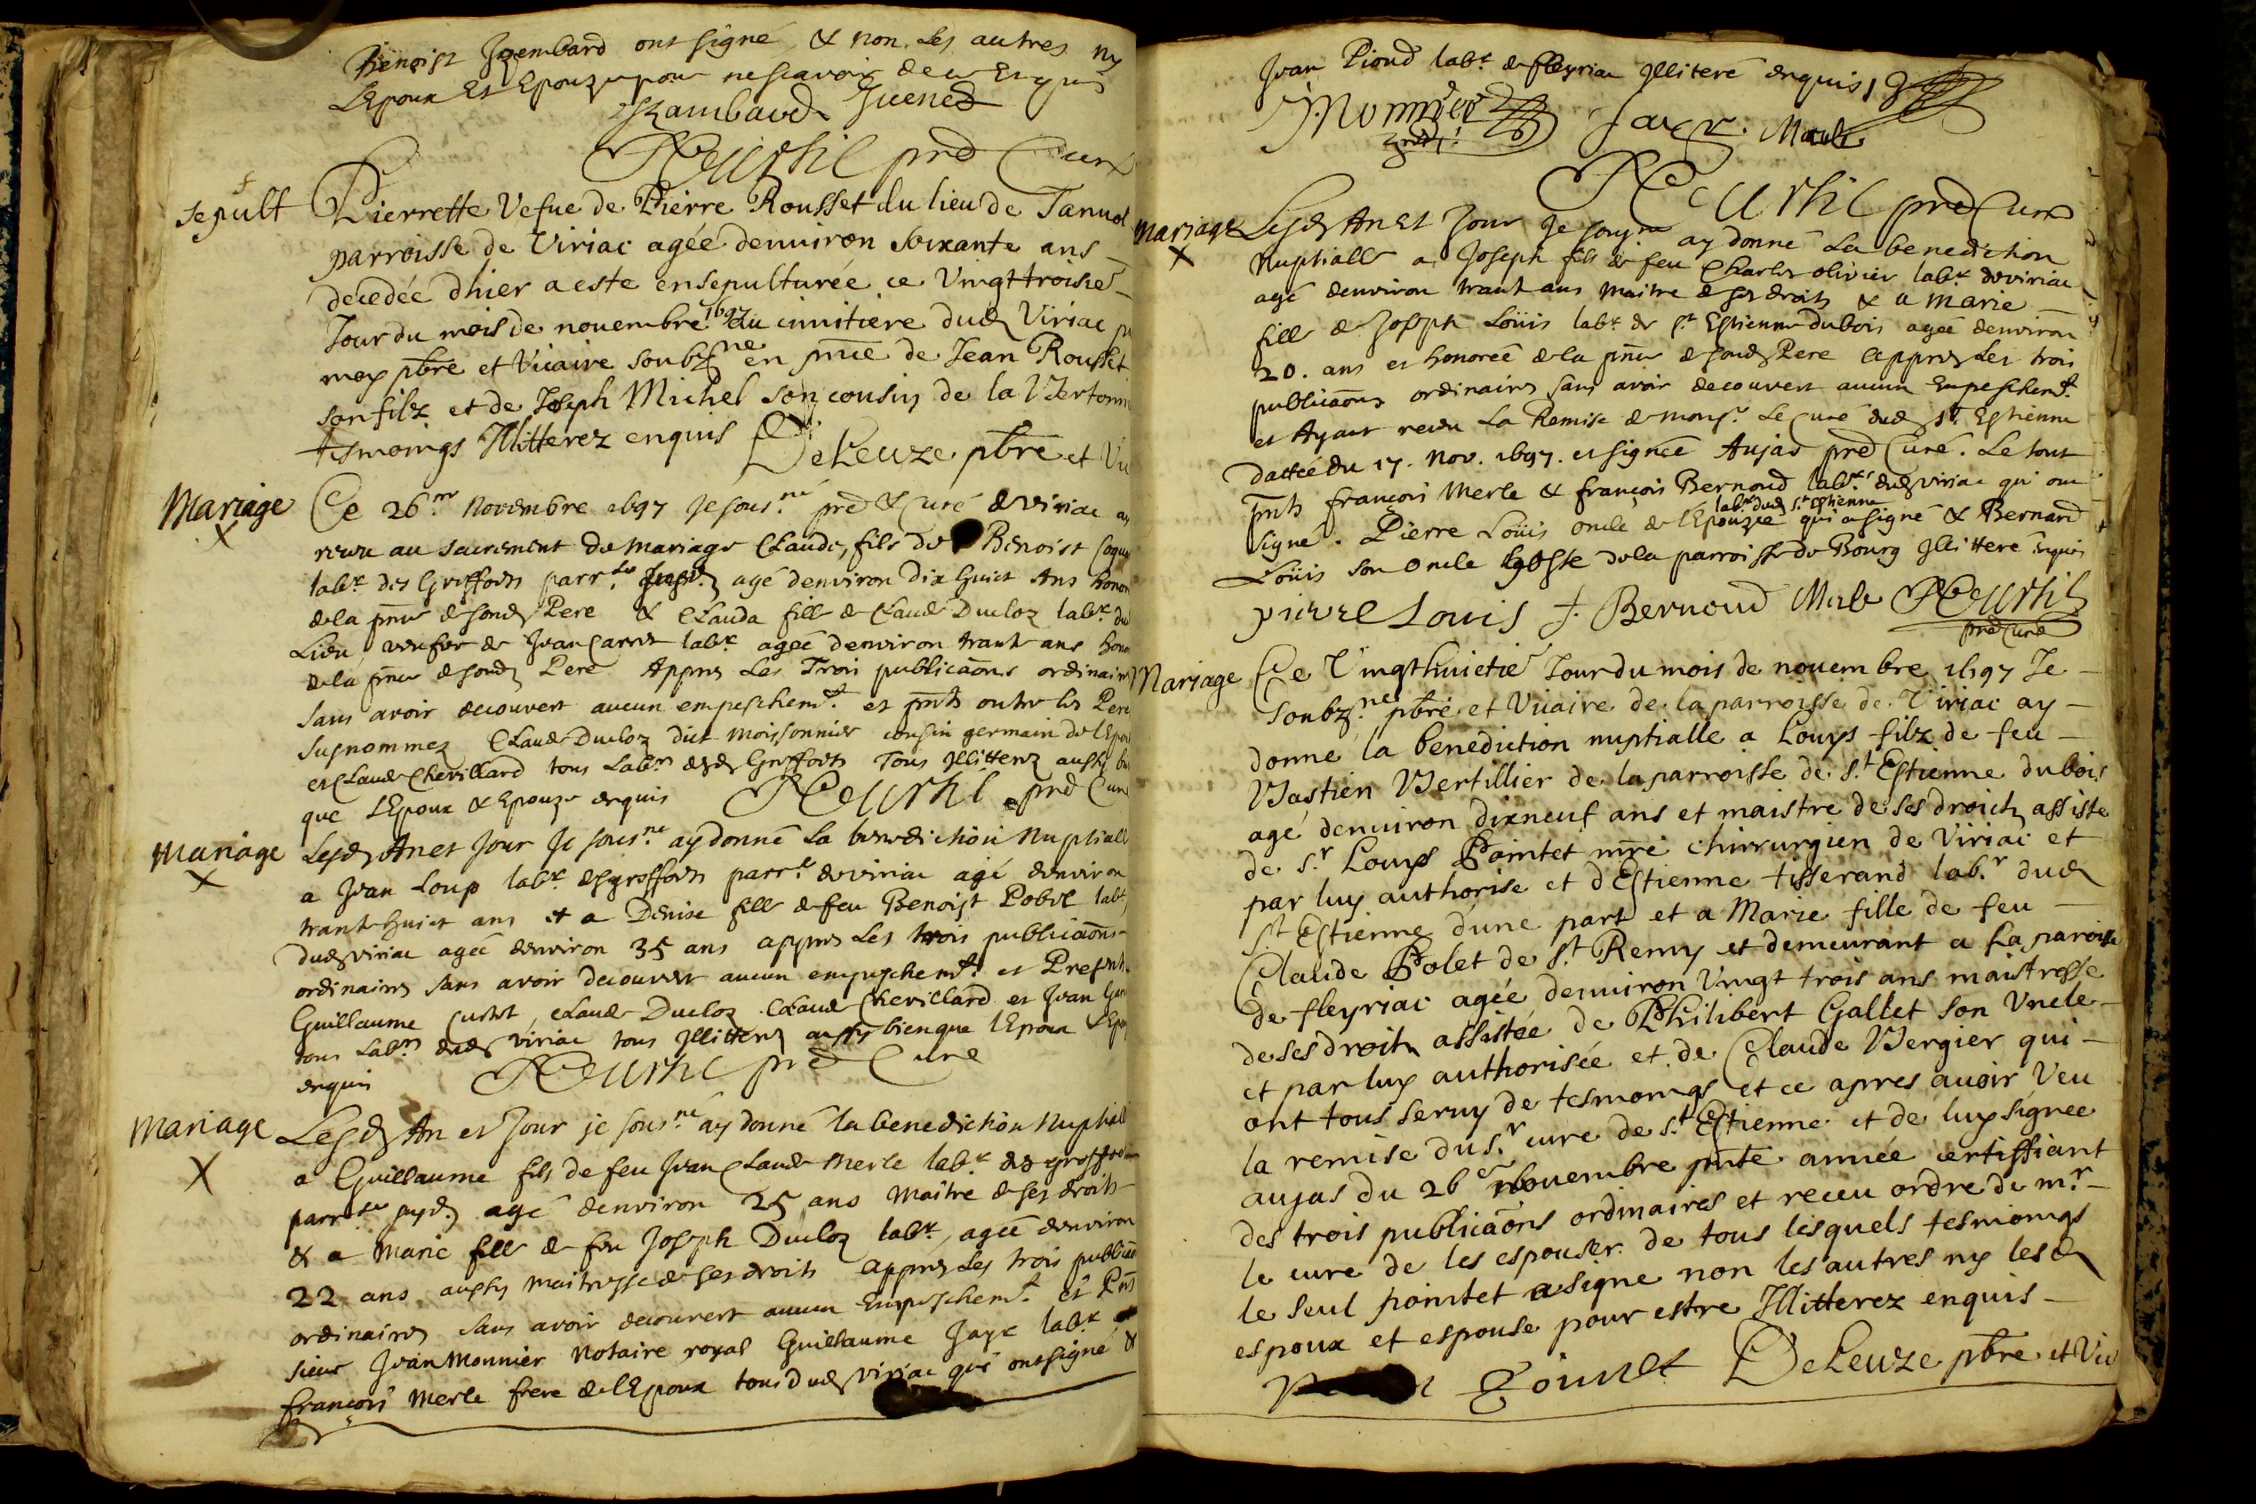 Benoist Izembard ont signé & non les autres ny
L'Epoux Et Epouze pour ne scavoir de ce Enquis
Izambard Juened
pred Curé
sepult
Pierrette Vefue de Pierre Rousset du lieu de Tanuol
parroisse de Viriac agéé denuiron soixante ans
decedéé dhier a este ensepulturéé ce Vingt troisie
Jour du mois de nouembre 1697 du cimitiere dud Viriac p
moy pbre et Vicaire soubz ne en pnce de Jean Rousset
son filz et de Joseph Michel son cousin de la
tesmoings Illitterez enquis DeLeuze pbre et Vic
Mariage X
Ce 26.me Novembre 1697 Je sous.né pred & Curé de viriac ay
receu au sacrement du mariage Claude, fils de Benoist
lab.r des Greffets parr.sse agé denviron dix huict Ans honoré
de la pnce de sond Pere & CLauda fille de Claude Ducloz lab.r dud
Lieu veufve de Jvan Carret lab.r ageé denviron trante ans hono
de la pnce de sond Pere Appres Les Trois publicaons ordinaires
sans avoir decouvert aucun empeschem.t et pnts outre les Pere
susnommez Claude Ducloz dict moissonnier cousin germain de l'Epoux
et Claude Chevillard tous Lab.rs desd Greffets Tous Illitterez aussy bien
que L'Epoux & Epouze enquis pred Curé
Mariage X
Lesd An et Jour Je sous.né ay donné La benediction Nuptialle
a Jvan Loup lab.r des greffets parr.e de viriac agé denviron
trante huict ans et a Denise fille de feu Benoist Pobel lab.r
dud viriac ageé denviron 35 ans appres Les trois publicaons
ordinaires sans avoir decouvert aucun empeschem.t et Presents
Guillaume Curtet, Claude Ducloz Claude Chevillard et Jvan
tous Lab.rs dud viriac tous Illitterez aussy bien que l'Epoux & Epo
enquis pred Curé
Mariage X
Lesd An et Jour je sous.né ay donné la benediction Nuptiall
a Guillaume fils de feu Jvan Claude Merle lab.r des greffets
parr.sse susd. agé denviron 25 ans Maitre de ses droits
& a Marie fille de feu Joseph Ducloz lab.r, ageé denviron
22 ans aussy maitresse de ses droits appres Les trois publicao
ordinaires sans avoir decouvert aucun Empeschem.t et Pnts
sieur Jvan Monnier Notaire royal Guillaume Jaye lab.r
françois Merle frere de l'Epoux tous dud viriac qui ont signé &
Jvan Piond lab.r de fleyriac Illiteré enquis
J. Monnier Jaye. Merle
pred Curé
Mariage X
Lesd An Et Jour Je sousné ay donné La benediction
Nuptialle a Joseph fils de feu Charles olivier lab.r de viriac
agé denviron trante ans Maitre de ses droits & a Marie
fille de Joseph Loüis lab.r de S.t Estienne dubois ageé denviron
20. ans et honoreé de la pnce de sond Pere appres Les trois
publicaons ordinaires sans avoir decouvert aucun Empeschem.t
et Ayant receu La Remise de mons.r Le Curé dud s.t Estienne
datteé du 17. Nov. 1697. et signeé Aujas pred Curé. Le tout
pnts françois Merle & françois Bernoud lab.rs dud viriac qui ont
signé. Pierre Loüis oncle de l'Epouzeé lab.r dud s.t Estienne qui a signé & Bernard
Loüis son oncle hoste de la parroisse de Bourg Illitteré enquis
pierre Louis f. Bernoud Merle
pred Curé
Mariage
Ce Vingthuictie Jour du mois de nouembre 1697 Je
soubz.né pbre et Vicaire de la parroisse de Viriac ay
donne la benediction nuptialle a Louys filz de feu
Vastien Vertillier de la parroisse de s.t Estienne dubois
agé denuiron dixneuf ans et maistre de ses droicts assiste
de s.r Louys Pointet mre chirurgien de Viriac et
par luy authorise et d'Estienne tisserand lab.r dud
s.t Estienne d'une part et a Marie fille de feu
Claude Polet de s.t Remy et demeurant a la paroisse
de fleyriac agéé denuiron Vingt trois ans maistresse
de ses droits assistéé de Philibert Gallet son Vncle
et par luy authoriséé et de Claude Vergier qui
ont tous seruy de tesmoings et ce apres auoir Veu
la remise du s.r cure de s.t Estienne et de luy signee
aujas du 26e nouembre pnte année certiffiant
des trois publicaons ordinaires et receu ordre de m.r
le cure de les espouser. de tous lesquels tesmoings
le seul pointet a signe non les autres ny lesd
espoux et espouse pour estre Illitterez enquis
Pointet DeLeuze pbre et Vic